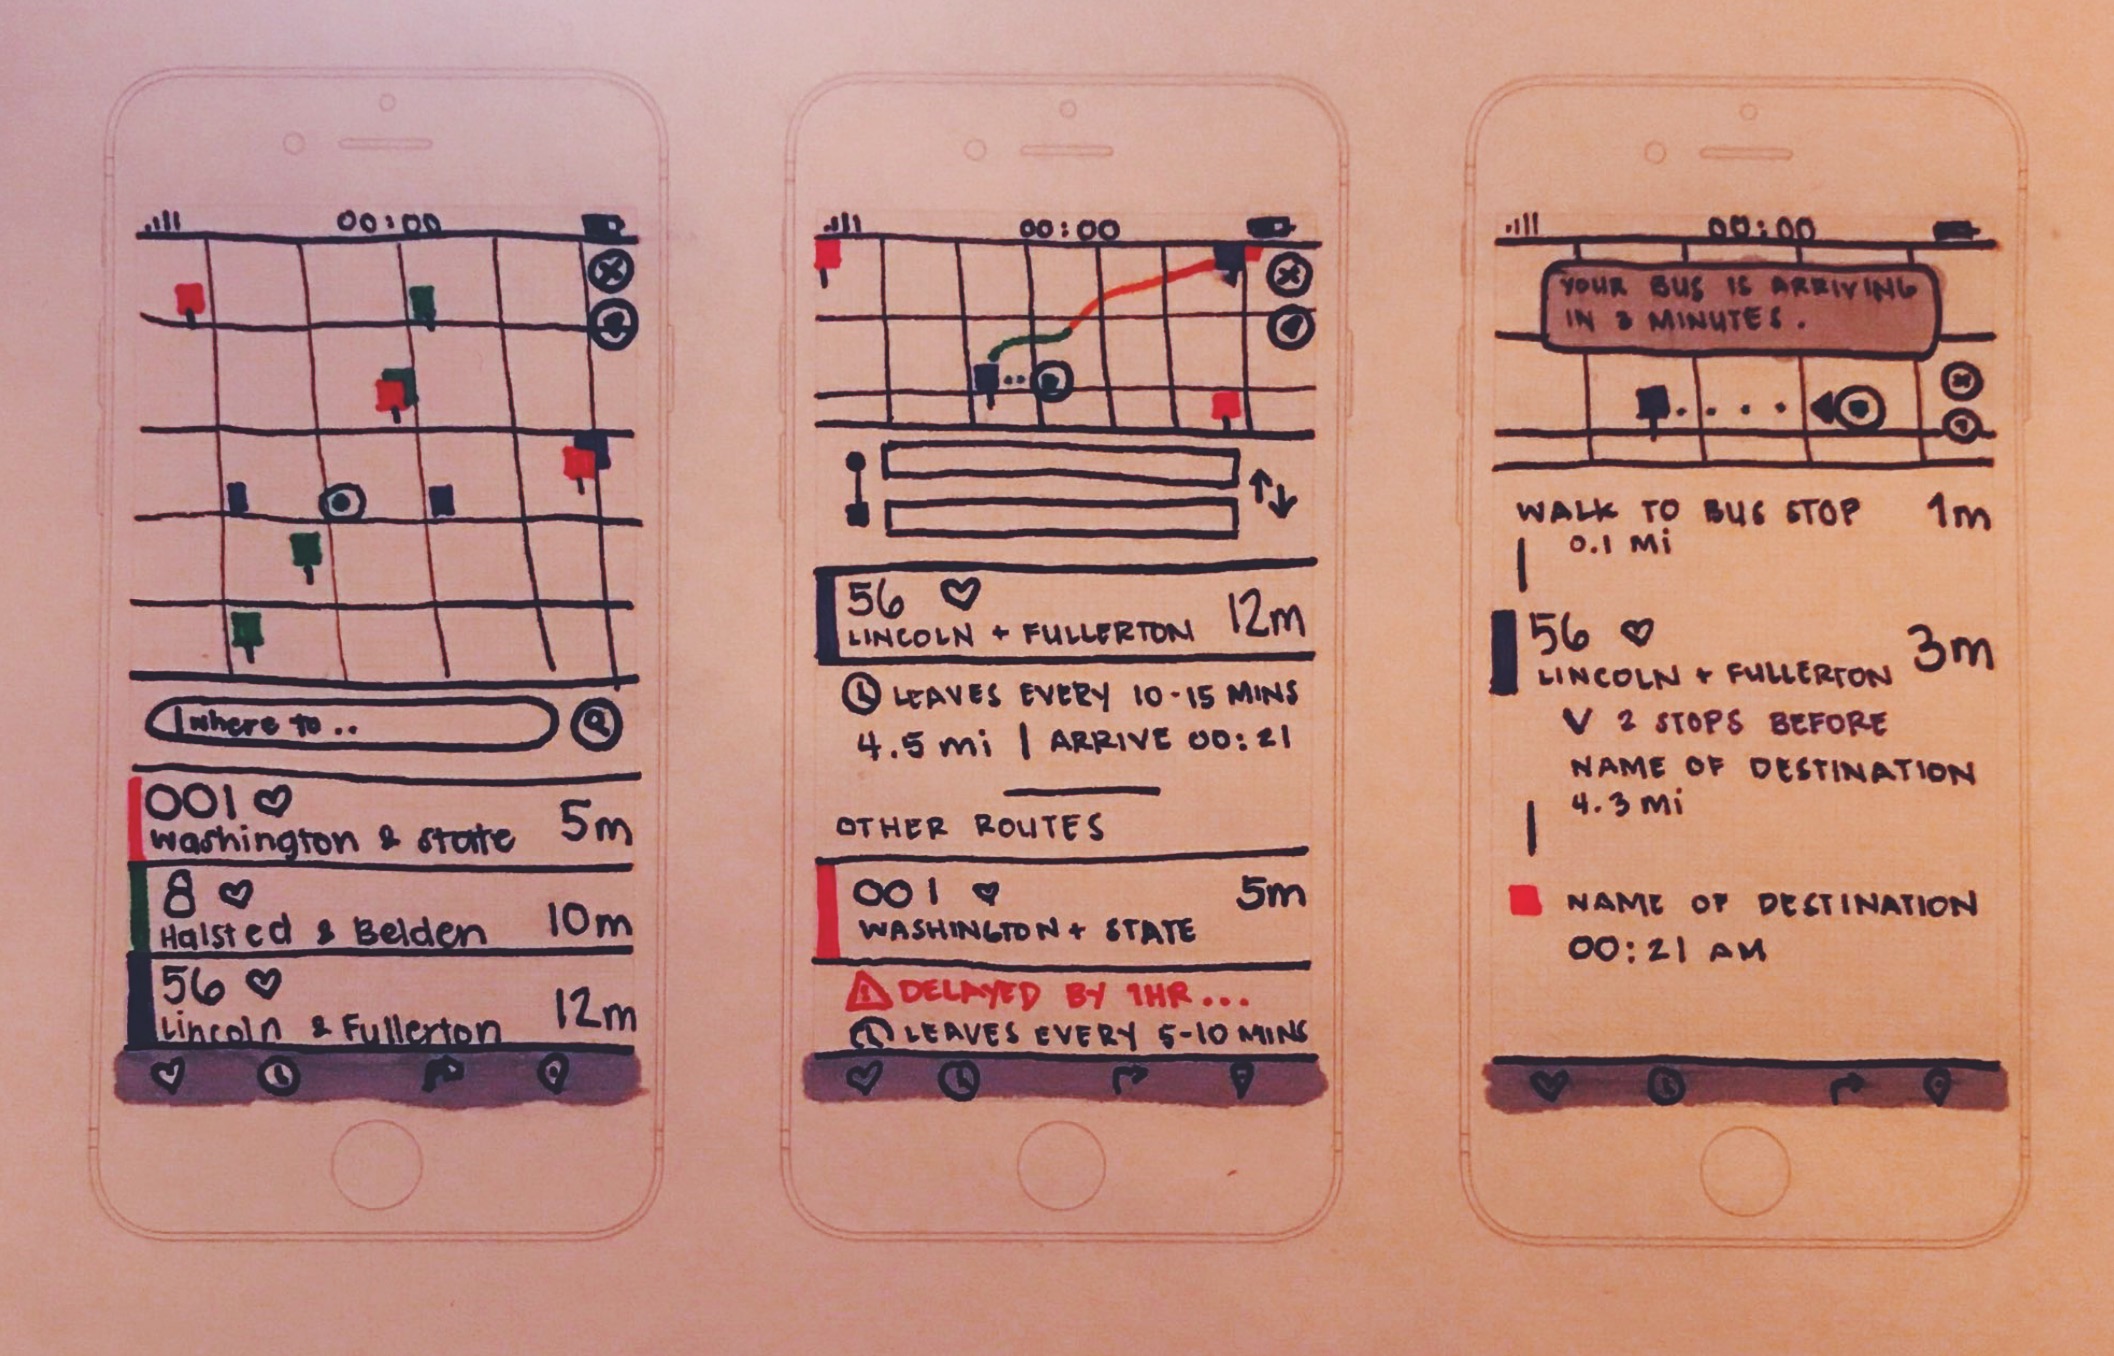 00:00
where to ..
001
Washington & State
5m
8
Halsted & Belden
10m
56
Lincoln & Fullerton
12m
00:00
56
LINCOLN + FULLERTON
12m
LEAVES EVERY 10-15 MINS
4.5 mi | ARRIVE 00:21
OTHER ROUTES
001
WASHINGTON + STATE
5m
DELAYED BY 1HR...
LEAVES EVERY 5-10 MINS
00:00
YOUR BUS IS ARRIVING
IN 3 MINUTES.
WALK TO BUS STOP 1m
0.1 Mi
56
LINCOLN + FULLERTON
3m
V 2 STOPS BEFORE
NAME OF DESTINATION
4.3 mi
NAME OF DESTINATION
00:21 AM